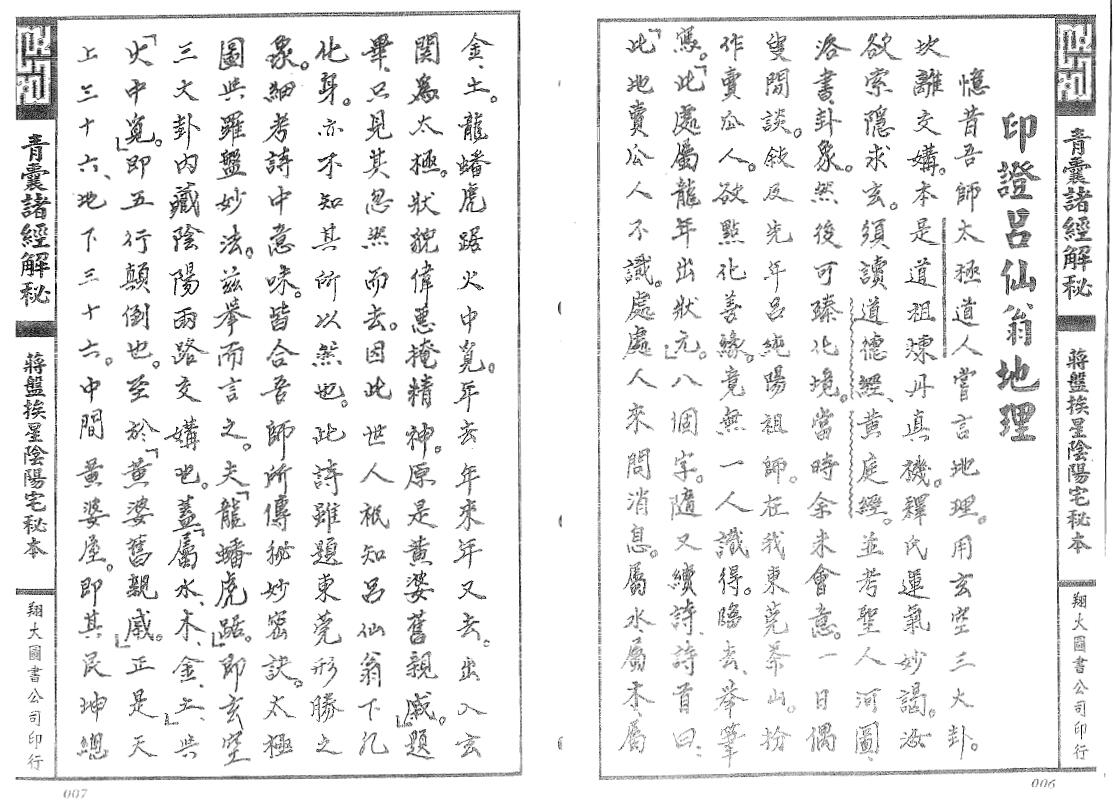 青囊諸經解秘
蔣盤挨星陰陽宅秘本
翔大圖書公司印行
印證呂仙翁地理
憶昔吾師太極道人嘗言地理。用玄空三大卦。
坎離交媾。本是道祖煉丹真機。釋氏運氣妙謁。汝
欲索隱求玄。須讀道德經、黃庭經。並考聖人河圖、
洛書、卦象。然後可臻化境。當時余未會意。一日偶
叟閒談。敍及先年呂純陽祖師。在我東莞茶山。扮
作賣瓜人。欲點化善緣。竟無一人識得。臨去、舉筆
凴。「此處屬龍年出狀元。」八個字。隨又續詩、詩首曰：
「此地賣瓜人不識。處處人來問消息。屬水、屬木、屬
006
金、土。龍蟠虎踞火中覓。年去年來年又去。出入玄
関為太極。狀貌偉悪掩精神。原是黄婆舊親戚。」題
畢、只見其忽然而去。因此世人袛知呂仙翁下凡
化身。亦不知其所以然也。此詩雖題東莞形勝之
象。細考詩中意味。皆合吾師所傳秘妙密訣。太極
圖與羅盤妙法。茲舉而言之。夫「龍蟠虎踞。」即玄空
三大卦內藏陰陽兩路交媾也。蓋「屬水、木、金、土、」與
「火中覓。」即五行顛倒也。至於「黄婆舊親戚。」正是天
上三十六、地下三十六。中間黄婆屋。即其艮坤總
青囊諸經解秘
蔣盤挨星陰陽宅秘本
翔大圖書公司印行
007